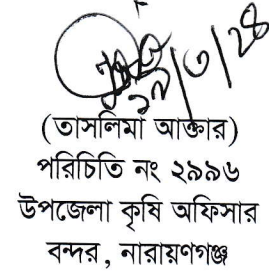 ২৯/৩/২৪
(তাসলিমা আক্তার)
পরিচিতি নং ২৯৯৬
উপজেলা কৃষি অফিসার
বন্দর, নারায়ণগঞ্জ